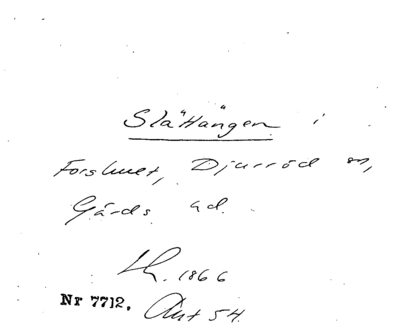 Slättängen i
Forshuset, Djurröd sn,
Gärds hd.
Lh. 1866
Nr 7712. Ant 54.